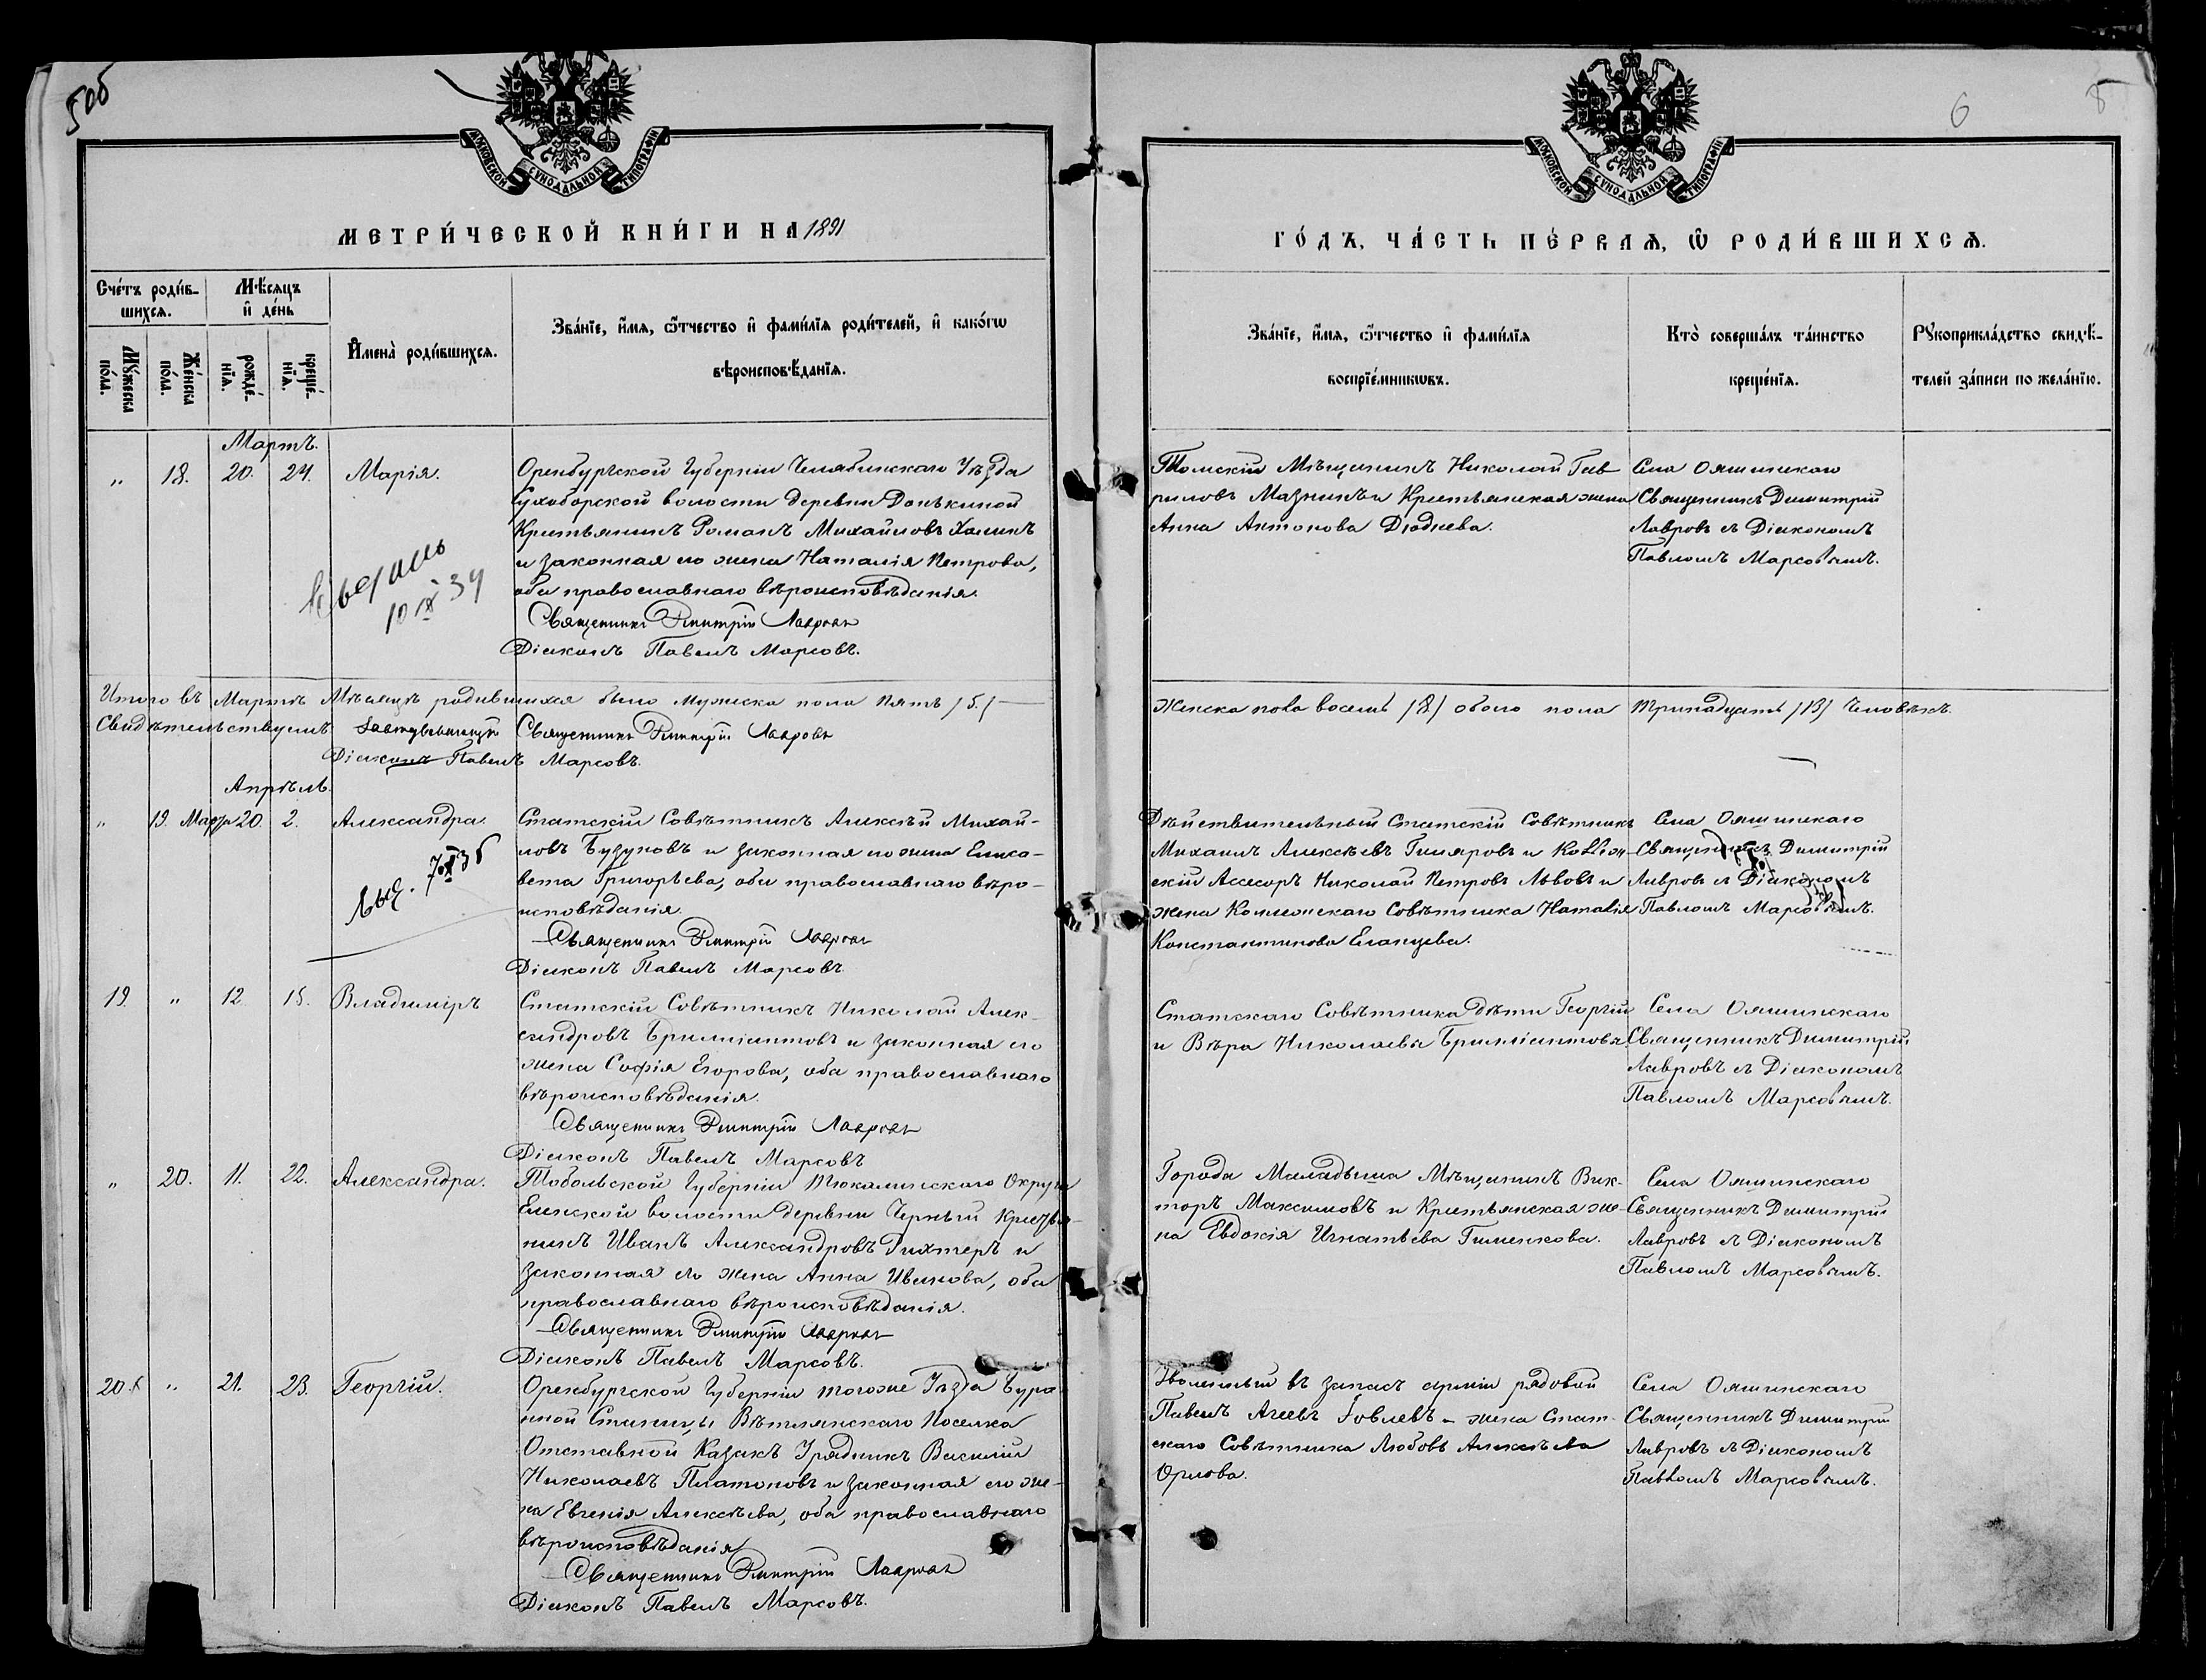 5об
МОСКОВСКОЙ СѴНОДАЛЬНОЙ ТИПОГРАФІИ
МЕТРИ́ЧЕСКОЙ КНИ́ГИ НА 1891
Сче́тъ роди́в-
шихсѧ.
Мѣ́сѧцъ
и҆ де́нь
Мꙋ́жеска
по́ла.
Же́нска
по́ла.
рожде́-
нїѧ.
креще́-
нїѧ.
И҆мена̀ роди́вшихсѧ.
Зва́нїе, и҆́мѧ, ѻ҆́тчество и҆ фами́лїѧ роди́телей, и҆ како́гѡ
вѣроисповѣ́данїѧ.
Мартъ.
„ 18. 20. 24. Марія.
Оренбургской Губерніи Челябинскаго Уѣзда
Сухоборской волости деревни Донькиной
Крестьянинъ Романъ Михайловъ
и законная его жена Наталія Петрова,
оба православнаго вѣроисповѣданія.
Священникъ Димитрій Лавровъ
Діаконъ Павелъ Марсовъ.
10 IX 39
Итого въ Мартѣ Мѣсяцѣ родившихся было мужеска пола пять /5/
Свидѣтельствуемъ Священникъ Димитрій Лавровъ
Діаконъ Павелъ Марсовъ.
Апрѣль.
„ 19. Марта 20. 2. Александра.
Статскій Совѣтникъ Алексѣй Михай-
ловъ Бузуновъ и законная его жена Елиса-
вета Григорьева, оба православнаго вѣро-
исповѣданія.
Священникъ Димитрій Лавровъ
Діаконъ Павелъ Марсовъ.
19. „ 12. 15. Владиміръ
Статскій Совѣтникъ Николай Алек-
сандровъ Брилліантовъ и законная его
жена Софія Егорова, оба православнаго
вѣроисповѣданія.
Священникъ Димитрій Лавровъ
Діаконъ Павелъ Марсовъ
„ 20. 11. 22. Александра.
Тобольской Губерніи Тюкалинскаго Округа
Еланской волости деревни Черный Крестья-
нинъ Иванъ Александровъ Рихтеръ и
законная его жена Анна Иванова, оба
православнаго вѣроисповѣданія.
Священникъ Димитрій Лавровъ
Діаконъ Павелъ Марсовъ.
20. „ 21. 23. Георгій.
Оренбургской Губерніи тогоже Уѣзда Бура-
нной Станицы Вѣтлянскаго Поселка
Отставной Казакъ Урядникъ Василій
Николаевъ Платоновъ и законная его же-
на Евгенія Алексѣева, оба православнаго
вѣроисповѣданія
Священникъ Димитрій Лавровъ
Діаконъ Павелъ Марсовъ.
6
МОСКОВСКОЙ СѴНОДАЛЬНОЙ ТИПОГРАФІИ
ГО́ДЪ, ЧА́СТЬ ПЕ́РВАѦ, Ѽ РОДИ́ВШИХСѦ.
Зва́нїе, и҆́мѧ, ѻ҆́тчество и҆ фами́лїѧ
воспрїе́мникѡвъ.
Кто̀ соверша́лъ та́инство
креще́нїѧ.
Рꙋкоприкла́дство свидѣ́-
телей за́писи по жела́нїю.
Томскій Мѣщанинъ Николай Гав-
риловъ Мазникъ и Крестьянская жена
Анна Антонова Дюднева.
Села Ояшинскаго
Священникъ Димитрій
Лавровъ съ Діакономъ
Павломъ Марсовымъ.
Женска пола восемь /8/ обоего пола тринадцать /13/ человѣкъ.
Дѣйствительный Статскій Совѣтникъ
Михаилъ Алексѣевъ Гиляровъ и Коллеж-
скій Ассесоръ Николай Петровъ Львовъ и
жена Коллежскаго Совѣтника Наталія
Константинова Еланцева.
Села Ояшинскаго
Священникъ Димитрій
Лавровъ съ Діакономъ
Павломъ Марсовымъ.
Статскаго Совѣтника дѣти Георгій
и Вѣра Николаевы Брилліантовы.
Села Ояшинскаго
Священникъ Димитрій
Лавровъ съ Діакономъ
Павломъ Марсовымъ.
Города Маладыша Мѣщанинъ Вик-
торъ Максимовъ и Крестьянская же-
на Евдокія Игнатьева Гименкова.
Села Ояшинскаго
Священникъ Димитрій
Лавровъ съ Діакономъ
Павломъ Марсовымъ.
Уволенный въ запасъ арміи рядовой
Павелъ Агеевъ Іовлевъ – жена Стат-
скаго Совѣтника Любовь Алексѣева
Орлова.
Села Ояшинскаго
Священникъ Димитрій
Лавровъ съ Діакономъ
Павломъ Марсовымъ.